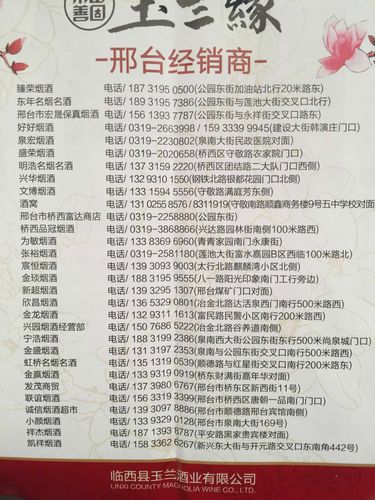 玉兰缘
-邢台经销商-
臻荣烟酒 电话/ 187 3195 0500(公园东街加油站北行20米路东)
东年名烟名酒 电话/ 189 3195 7386(公园东街与莲池大街交叉口北行)
邢台市宏晟保真烟酒 电话/ 156 1393 7787(公园东街与永祥街交叉口路东)
好好烟酒 电话/ 0319-2663998 / 159 3339 9945(建设大街韩演庄门口)
泉宏烟酒 电话/ 0319-2230802(泉南大街民政医院对面)
盛荣烟酒 电话/ 0319-2020658(桥西区守敬路农家院门口)
明浩名烟名酒 电话/ 137 3159 2220(桥西区团结路二大队门口西侧)
兴华烟酒 电话/ 132 9310 1550(钢铁北路银都花园门口北侧)
文博烟酒 电话/ 133 1594 5556(守敬路满庭芳东侧)
酒窝 电话/ 131 0255 8576 / 8311919(守敬南路顺鑫商务楼9号五中学校对面)
邢台市桥西富达商店 电话/ 0319-2258880(公园东街)
桥西品冠烟酒 电话/ 0319-3868866(兴达路园林街南侧100米路东)
为敏烟酒 电话/ 133 8369 6960(青青家园南门永康街)
张裕烟酒 电话/ 0319-2581180(莲池大街富水嘉园B区西临100米路北)
宸恒烟酒 电话/ 139 3093 9003(太行北路麒麟湾小区北侧)
金琰烟酒 电话/ 188 3195 9555(八一路阳光印象南门工行旁边)
新超烟酒 电话/ 139 3295 1307(邢台煤矿门口对面)
欣昌烟酒 电话/ 136 5329 0801(冶金北路达活泉西门南行500米路西)
金龙烟酒 电话/ 132 9311 1613(富民路民警小区南行200米路西)
兴园烟酒经营部 电话/ 150 7686 5222(冶金北路谷养道南侧)
宁浩烟酒 电话/ 188 3199 2398(泉南西大街与公园东街东行500米尚泉城门口)
金盛烟酒 电话/ 131 3197 2357(泉南与公园东街交叉口南行500米路西)
虹桥名烟名酒 电话/ 135 1319 0539(顺德路与红星街交叉口南行200米路东)
金赢烟酒 电话/ 189 3319 0919(桥东财满街嘉年华对面)
发茂商贸 电话/ 137 3980 6767(邢台市桥东区新西街11号)
联谊烟酒 电话/ 188 3319 3399(邢台市桥西区唐朝一品南门门口)
诚信烟酒超市 电话/ 139 3097 8886(邢台市顺德路邢台宾馆南侧)
小颜烟酒 电话/ 139 3292 0128(邢台市泉南大街169号)
祥杰烟酒 电话/ 187 3193 8787(平安路黑家贵宾楼对面)
凯祥烟酒 电话/ 158 3362 6267(新兴东大街与开元路交叉口东南角442号)
临西县玉兰酒业有限公司
LINXI COUNTY MAGNOLIA WINE CO., LTD.